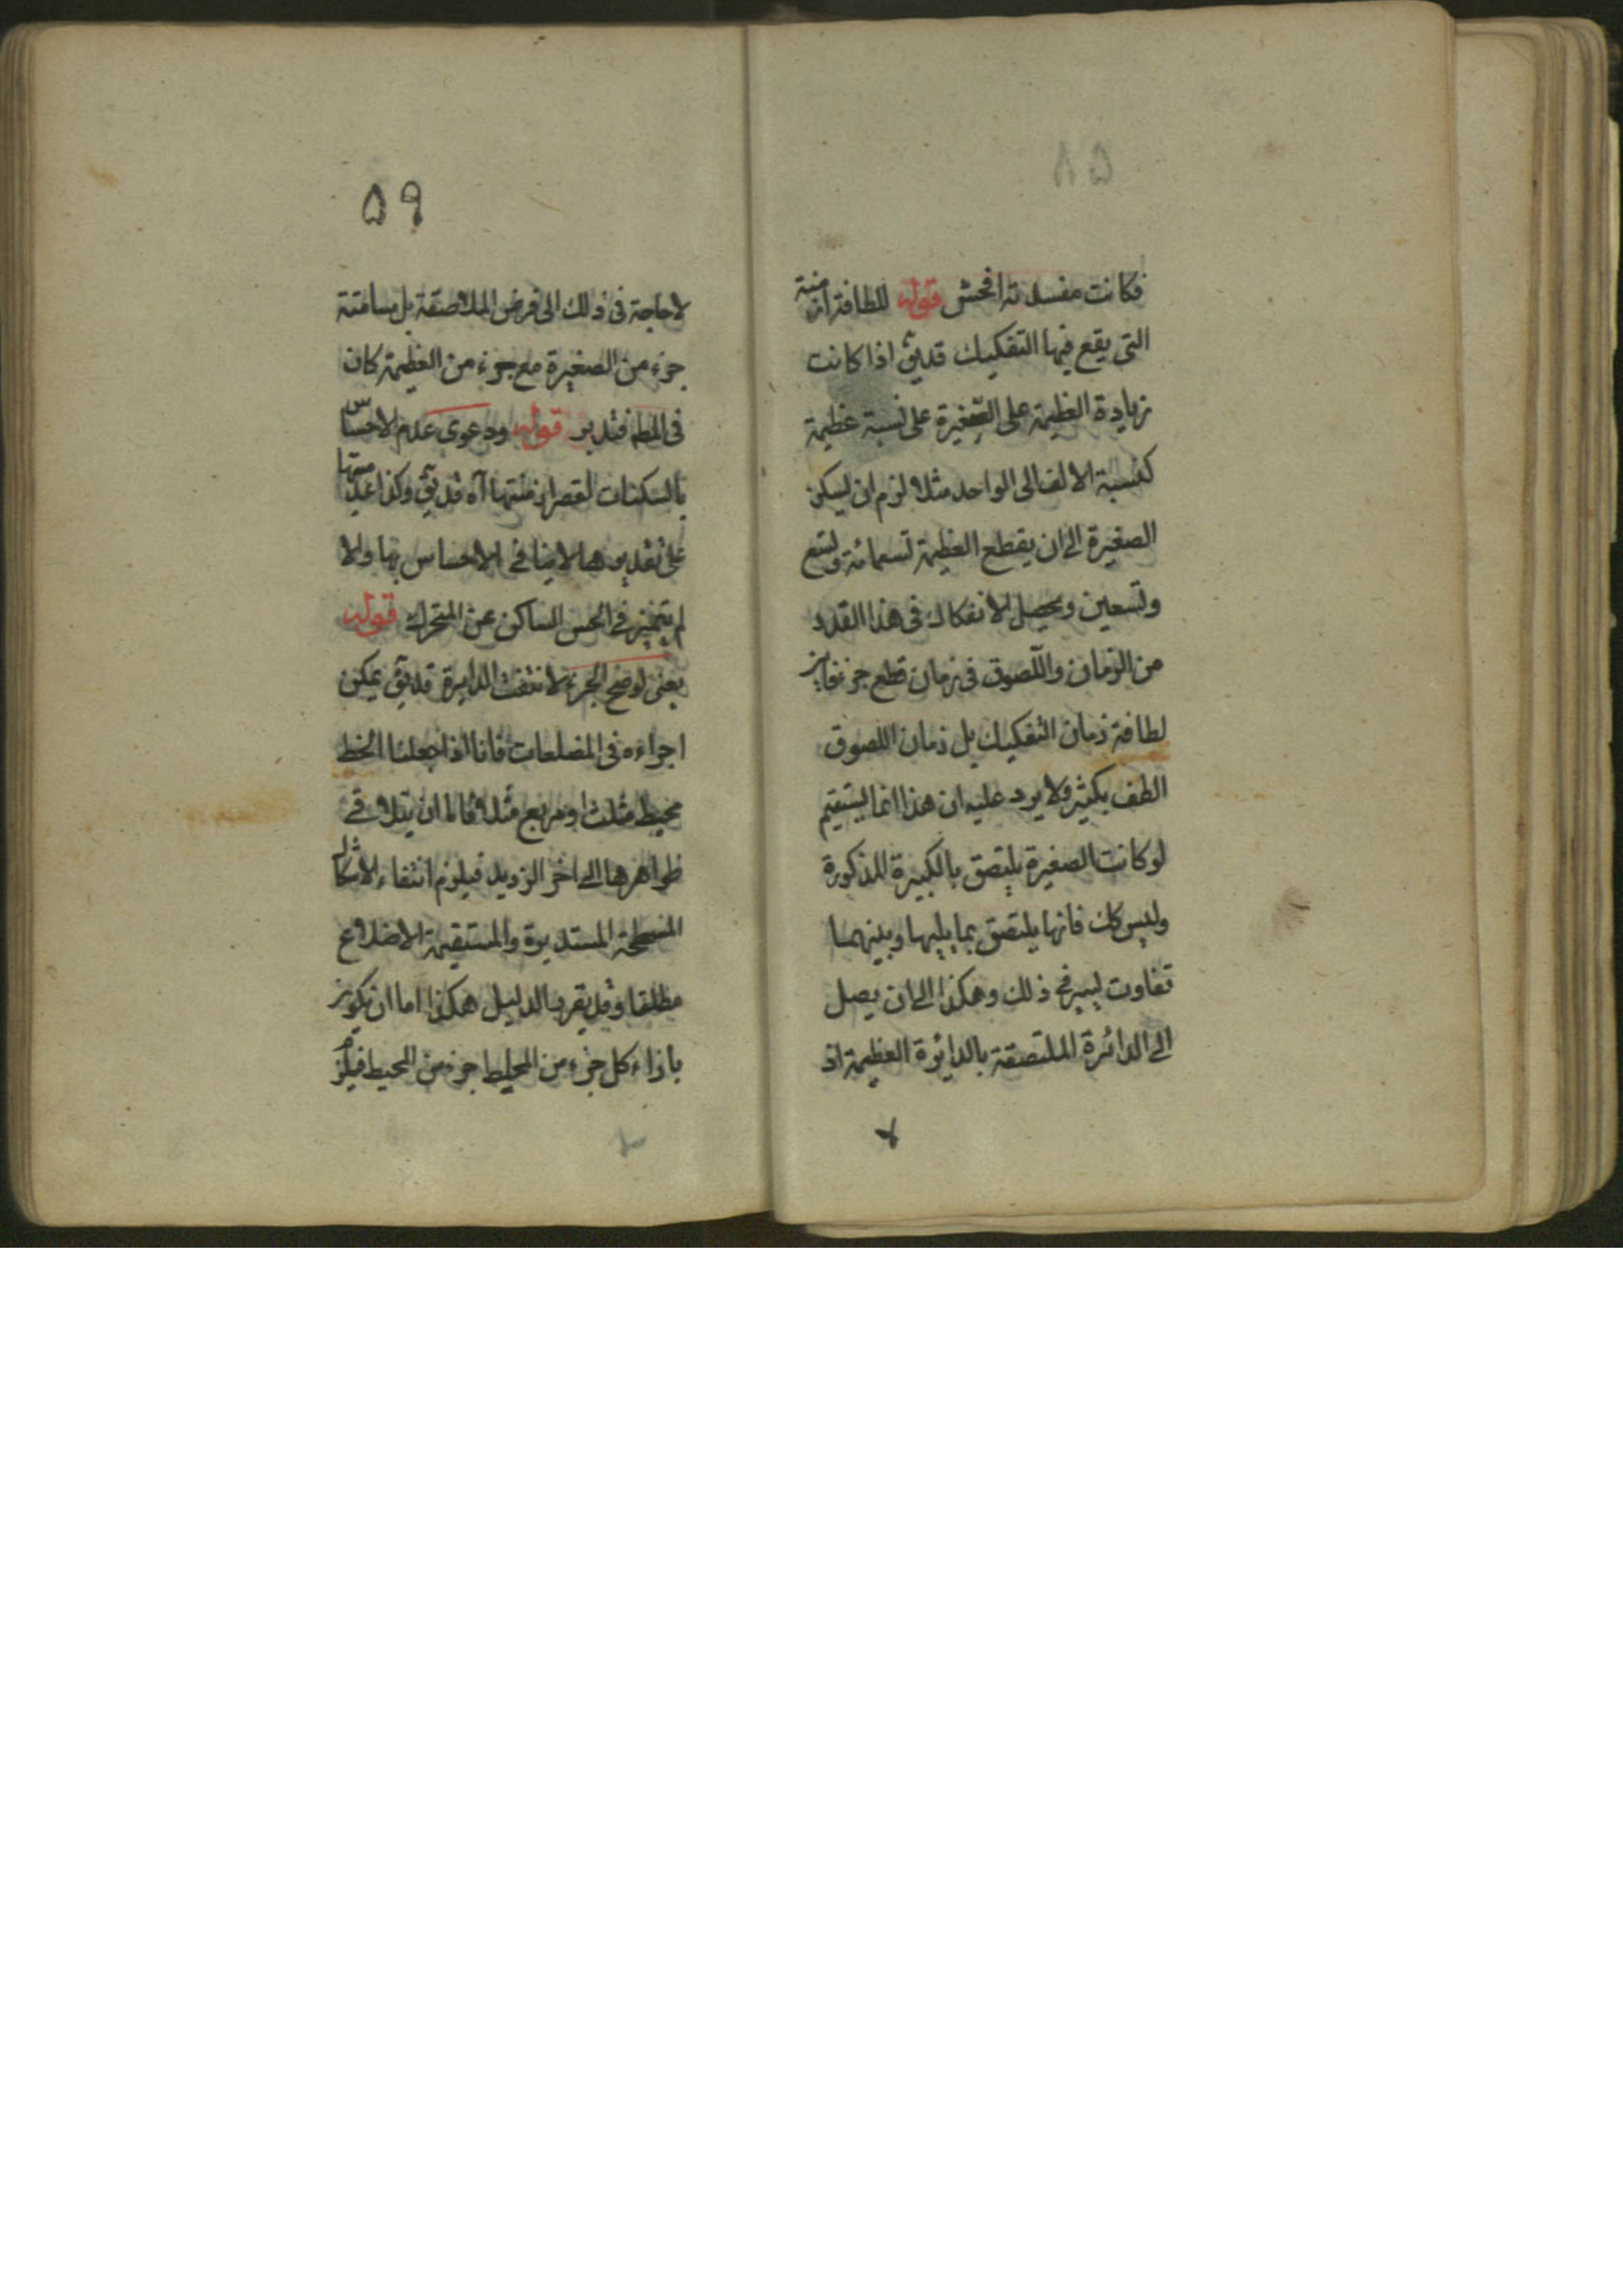 فكانت مفسدته افحش قوله للطافة ازمنة
التى يقع فيها التفكيك قديق اذا كانت
زيادة العظيمة على الصغيرة على نسبة عظيمة
كنسبة الالف الى الواحد مثلا لزم ان يسكن
الصغيرة الى ان يقطع العظيمة تسعمائة وتسع
وتسعين ويحصل الانفكاك فى هذا القدر
من الزمان واللصوق فى زمان قطع جزء فاين
لطافة زمان التفكيك بل زمان اللصوق
الطف بكثير ولا يرد عليه ان هذا انما يستقيم
لو كانت الصغيرة يلتصق بالكبيرة المذكورة
وليس كك فانها يلتصق بما يليها وبينهما
تفاوت يسير فى ذلك وهكذا الى ان يصل
الى الدائرة الملتصقة بالدائرة العظيمة اذ
۵۹
لا حاجة فى ذلك الى فرض الملاصقة بل مسامتة
جزء من الصغيرة مع جزء من العظيمة كان
فى المط فتدبر قوله ودعوى عدم الاحساس
بالسكنات لقصر ازمنتها آه قديق وكذا عدميتها
على تقديرها لا ينافى الاحساس بها ولا
لم يتميز فى الحس الساكن عن المتحرك قوله
يعنى لو صح الجزء لانتفت الدايرة قديق يمكن
اجراءه فى المضلعات فانا اذا جعلنا الخط
محيط مثلث او مربع مثلا فاما ان يتلاقى
ظواهرها الى اخر الترديد فيلزم انتفاء الاشكال
المسطحة المستديرة والمستقيمة الاضلاع
مطلقا وقد يقرر الدليل هكذا اما ان يكون
بازاء كل جزء من المحيط جزء من المحيط فيلزم